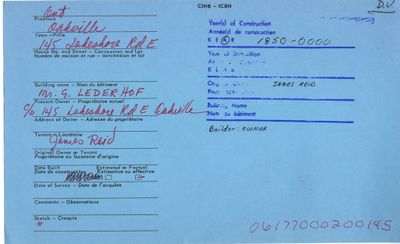 CIHB - ICBH
DU
Ont
Province
Oakville
Town - Ville
145 Lakeshore Rd E
House No. and Street - Concession and Lot
Numéro de maison et rue - concession et lot
Building name - Nom du bâtiment
Mr. G. LEDERHOF
Present Owner - Propriétaire actuel
c/o 145 Lakeshore Rd E Oakville
Address of Owner - Adresse du propriétaire
Tenant - Locataire
James Reid
Original Owner or Tenant
Propriétaire ou locataire d'origine
Date Built
Date de construction
Estimated or Factual
Estimative ou effective
Date of Survey - Date de l'enquête
Comments - Observations
Sketch - Croquis
Year(s) of Construction
Année(s) de construction
1850-0000
JAMES REID
Building Name
Nom du bâtiment
Builder - OWNER
06177000200145